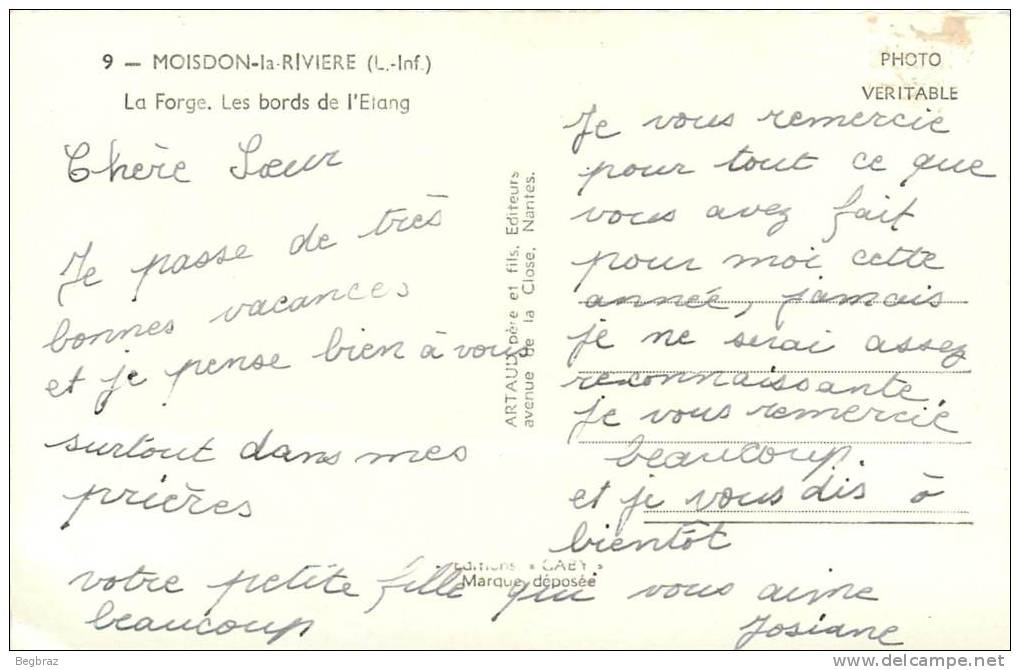 9 — MOISDON-la-RIVIERE (L.-Inf.)
La Forge. Les bords de l'Etang
PHOTO
VERITABLE
Chère Sœur
Je passe de très
bonnes vacances
et je pense bien à vous
surtout dans mes
prières
ARTAUD père et fils, Editeurs
avenue de la Close, Nantes.
Je vous remercie
pour tout ce que
vous avez fait
pour moi cette
année, jamais
je ne serai assez
reconnaissante.
Je vous remercie
beaucoup
et je vous dis à
bientôt
Editions « GABY »
Marque déposée
votre petite fille qui vous aime
beaucoup Josiane
Begbraz
www.delcampe.net